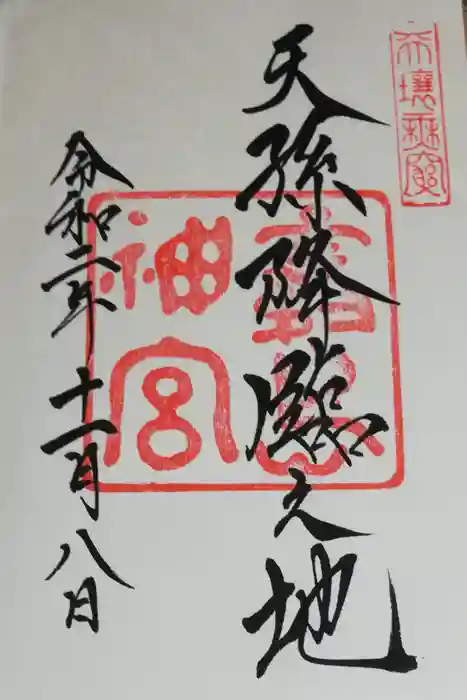 天壤無窮
天孫降臨之地
神宮
令和二年十一月八日